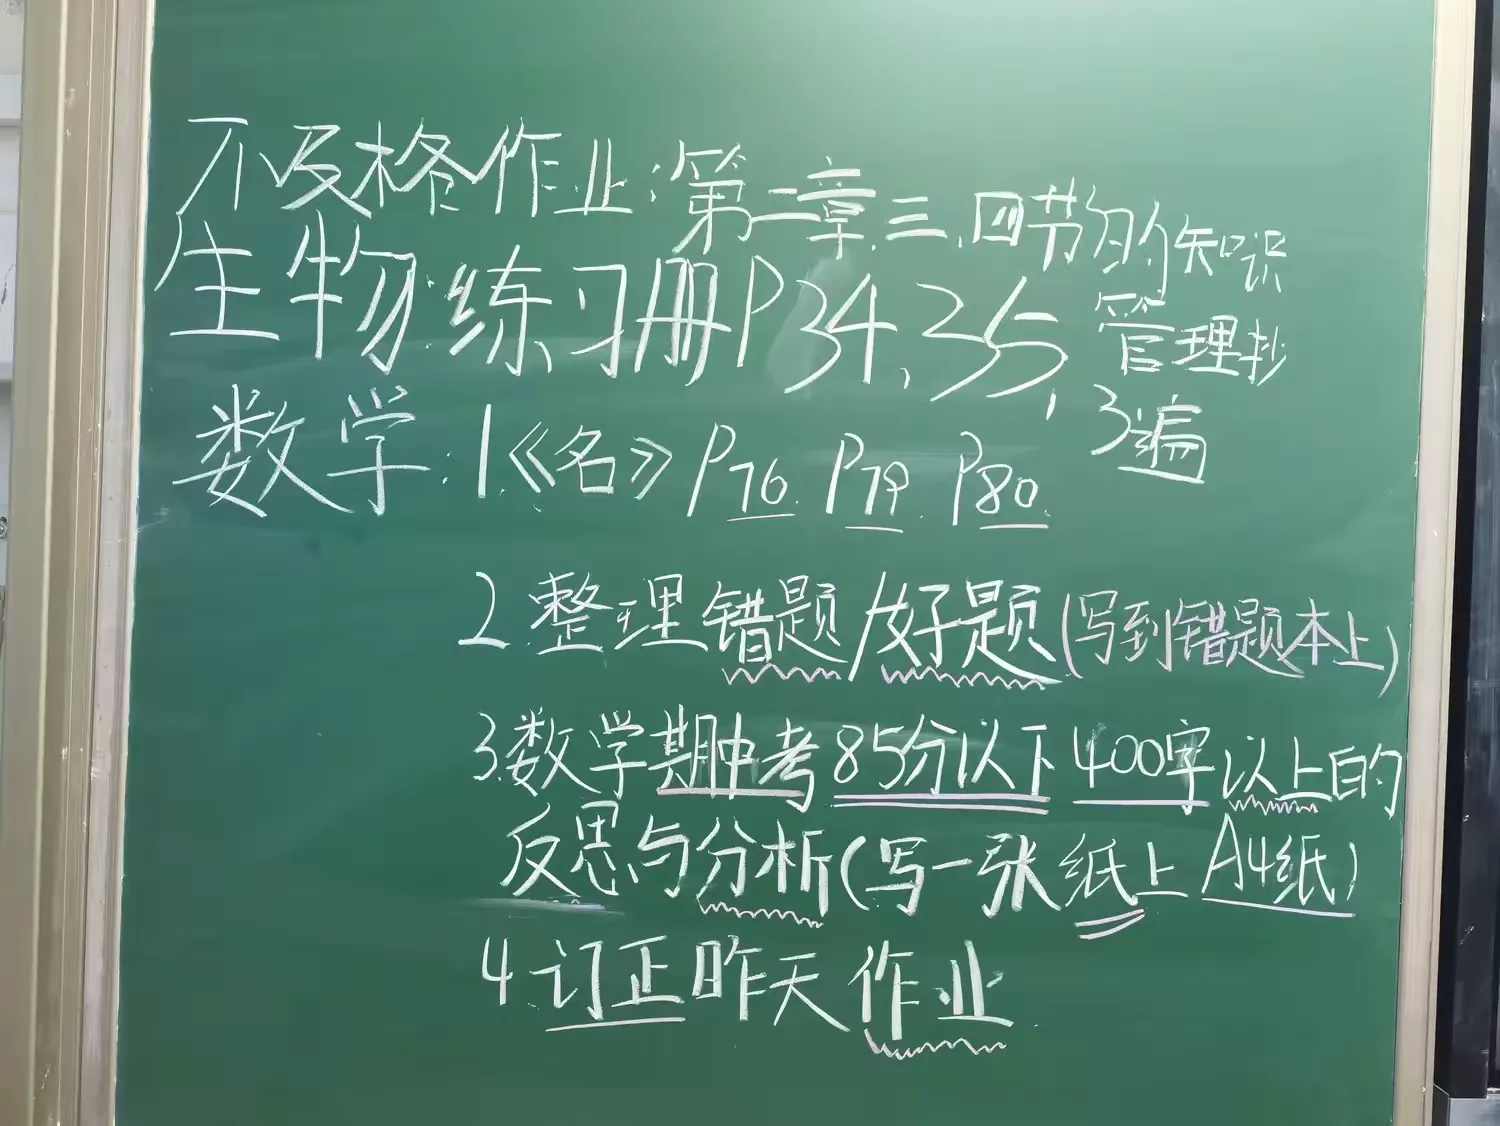 不及格作业:第二章三、四节的知识
管理抄
3遍
生物:练习册P34、35,
数学:1.《名》P76 P79 P80
2.整理错题/好题(写到错题本上)
3.数学期中考85分以下400字以上的
反思与分析(写一张纸上A4纸)
4.订正昨天作业